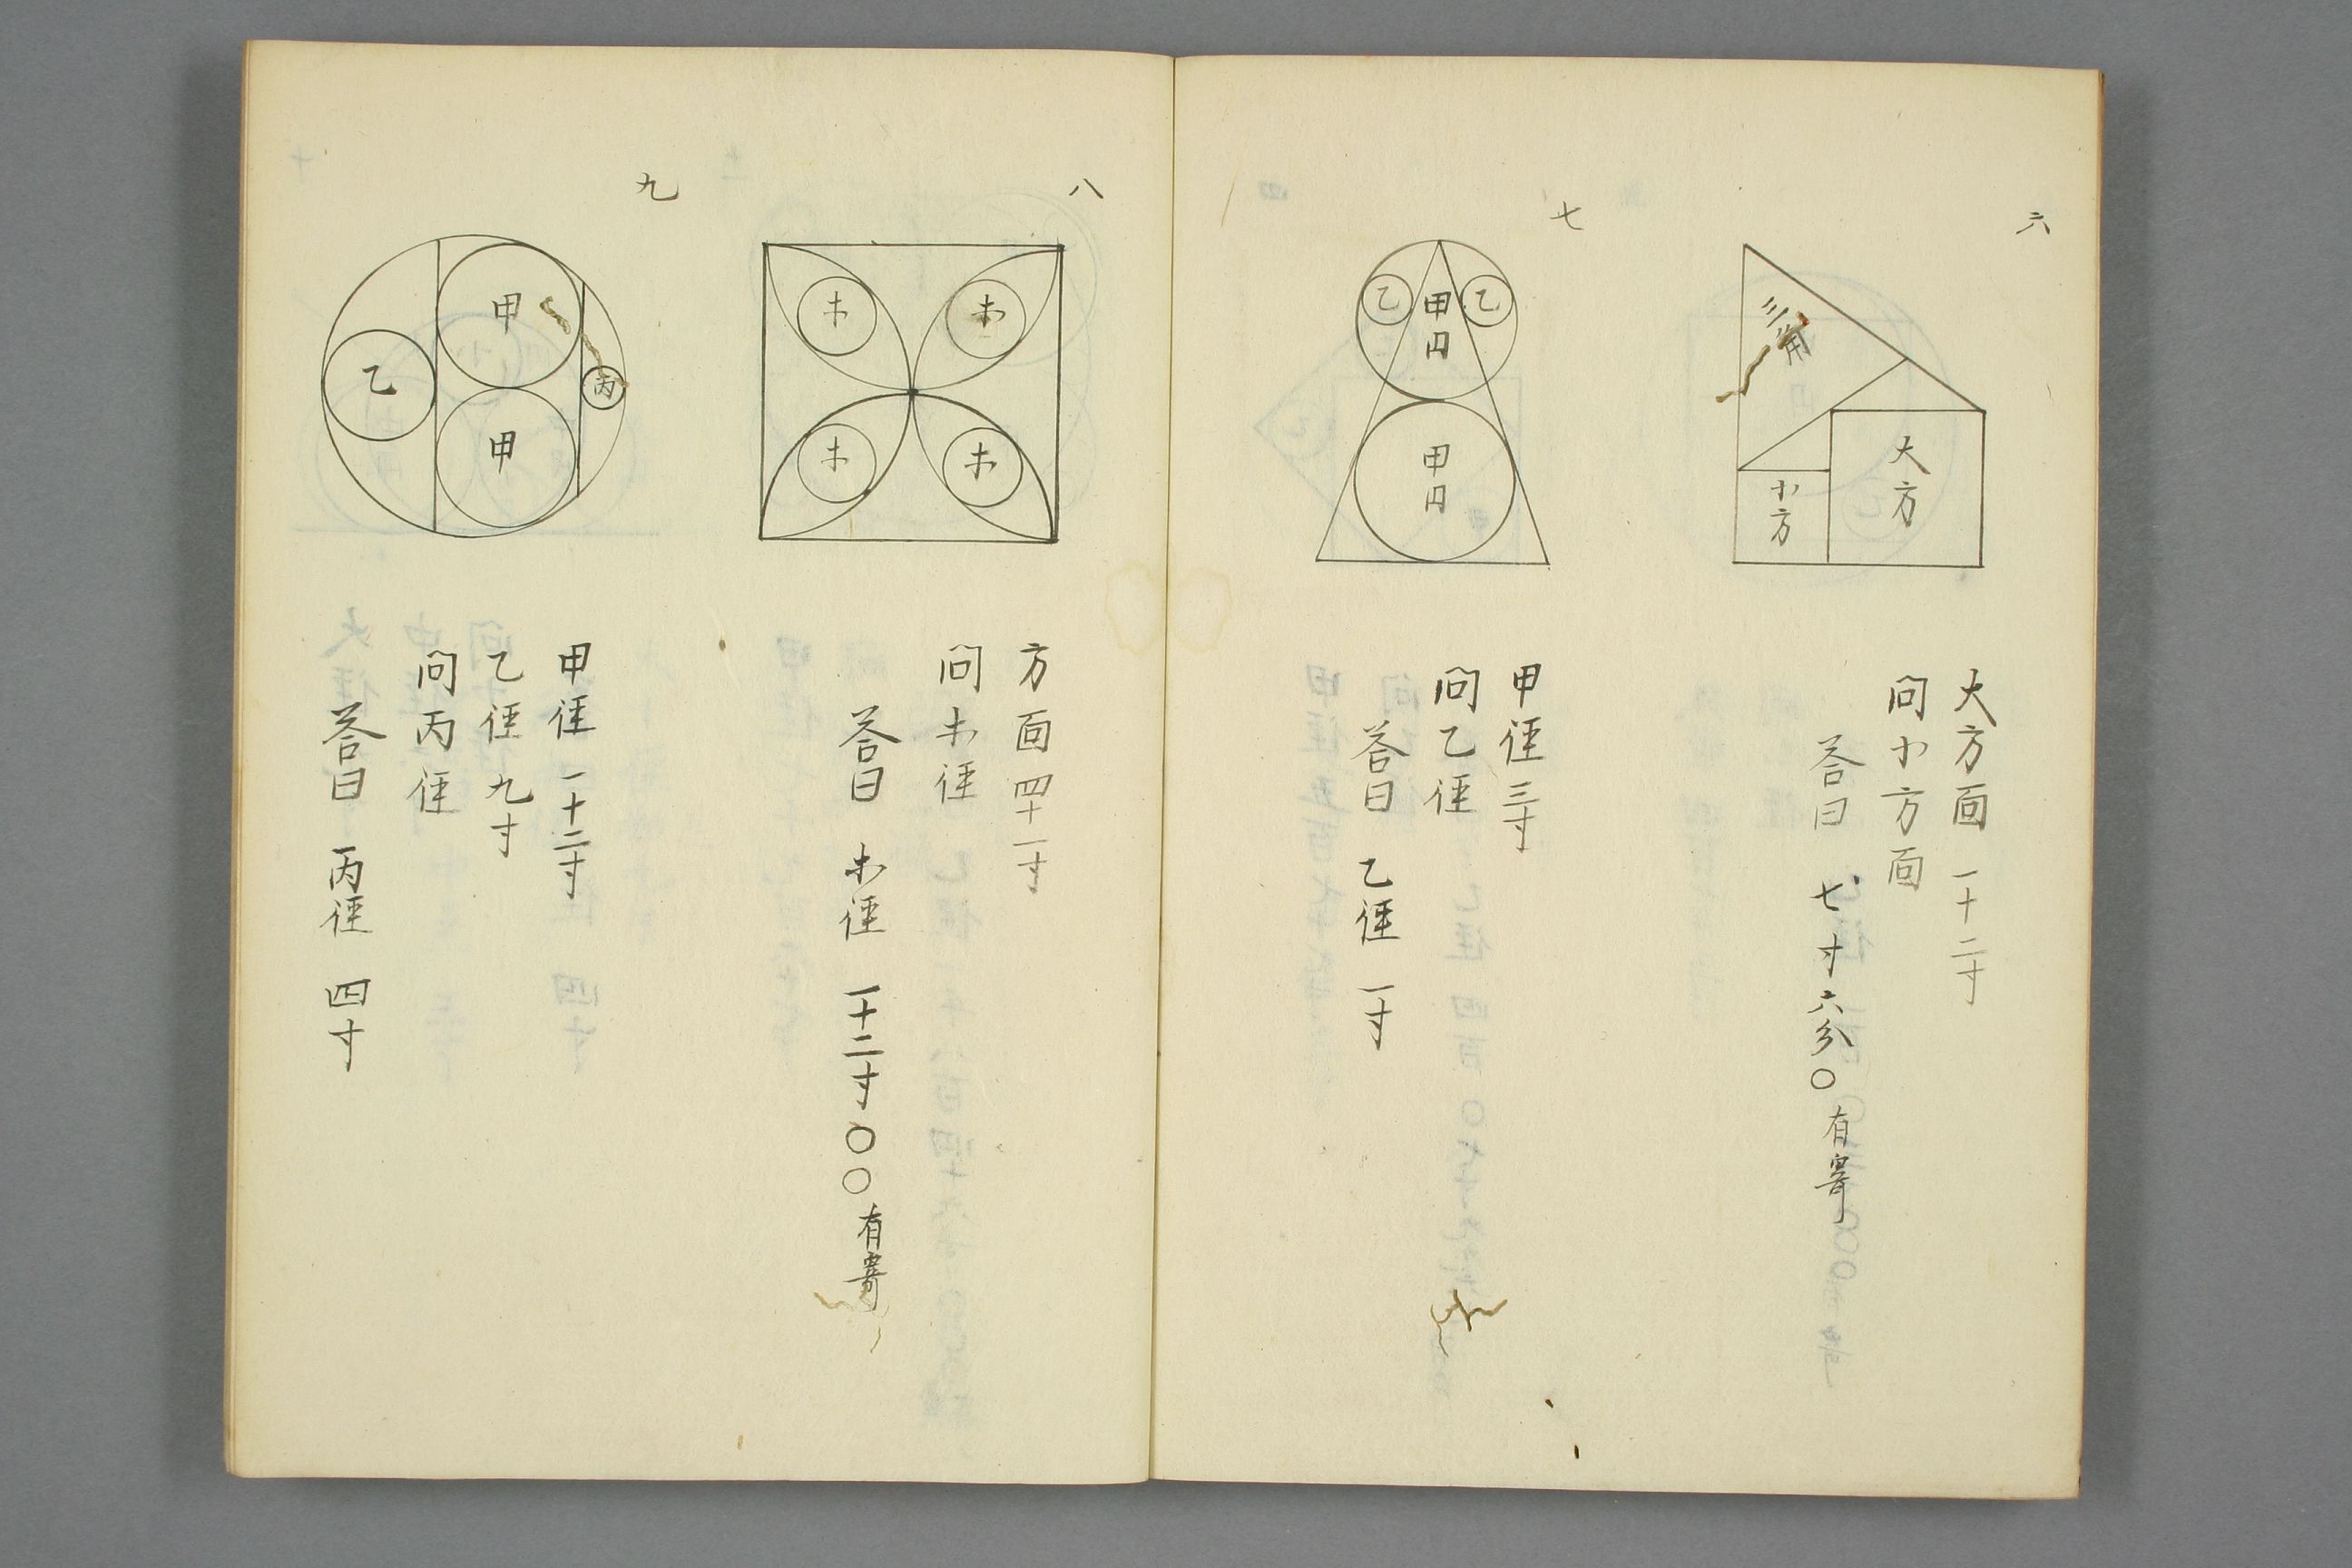 六
三角
大方
小方
大方面 一十二寸
問小方面
答曰 七寸六分〇有寄
七
乙 甲円 乙
甲円
甲径三寸
問乙径
答曰 乙径 一寸
八
朩 朩
朩 朩
方面四十一寸
問朩径
答曰 朩径 一十二寸〇〇有寄
九
甲
乙
丙
甲
甲径一十二寸
乙径九寸
問丙径
答曰 丙径 四寸